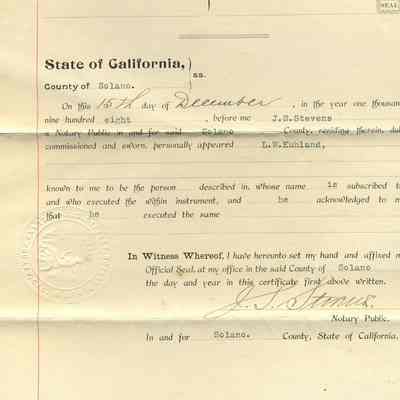 SEAL
State of California, )
) ss.
County of Solano.
On this 15th day of December, in the year one thousan
nine hundred eight, before me J.S.Stevens
a Notary Public in and for said Solano County, residing therein, dul
commissioned and sworn, personally appeared L.W.Kuhland,
known to me to be the person described in, whose name is subscribed t
and who executed the within instrument, and he acknowledged to m
that he executed the same
In Witness Whereof, I have hereunto set my hand and affixed m
Official Seal, at my office in the said County of Solano
the day and year in this certificate first above written.
J. S. Stevens.
Notary Public.
In and for Solano. County, State of California.